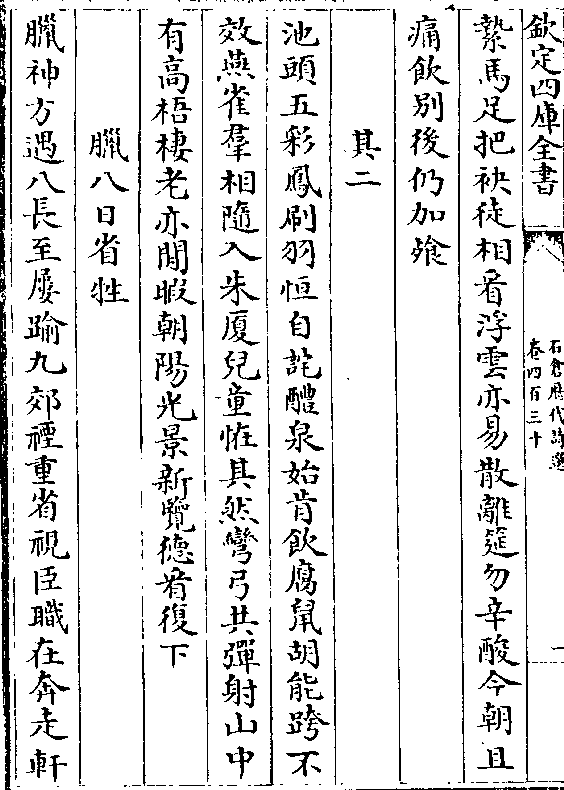 欽定四庫全書
石倉歷代詩選
卷四百三十
一
縶馬足把袂徒相看浮雲亦易散離筵勿辛酸今朝且
痛飲別後仍加飧
其二
池頭五彩鳳刷羽恒自詫醴泉始肯飲腐鼠胡能跨不
效燕雀羣相隨入朱厦兒童恠其然彎弓共彈射山中
有高梧棲老亦閒暇朝陽光景新覽德看復下
臘八日省牲
臘神方遇八長至屢踰九郊禋重省視臣職在奔走軒